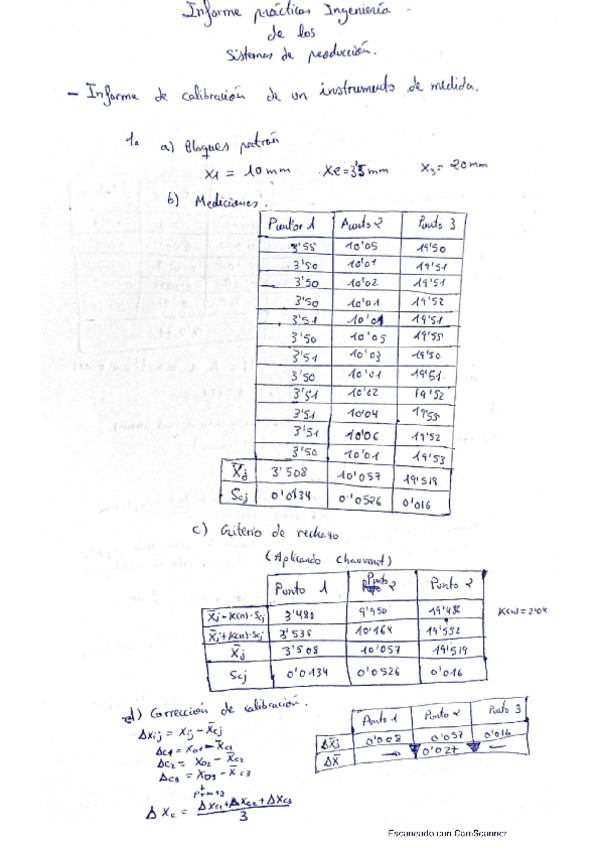 Informe prácticas Ingeniería
de los
Sistemas de producción.
- Informe de calibración de un instrumento de medida.
1. a) Bloques patrón
X1 = 10 mm X2 = 3'5 mm X3 = 20 mm
b) Mediciones.
Punto 1 Punto 2 Punto 3
3'55 10'05 19'50
3'50 10'01 19'51
3'50 10'02 19'51
3'50 10'01 19'52
3'51 10'01 19'51
3'50 10'05 19'55
3'51 10'03 19'50
3'50 10'01 19'51
3'51 10'02 19'52
3'51 10'04 19'55
3'51 10'06 19'52
3'50 10'01 19'53
X̄j 3'508 10'057 19'519
Scj 0'0134 0'0526 0'016
c) Criterio de rechazo
(Aplicando Chauvenet)
Punto 1 Punto 2 Punto 3
X̄j - K(n)·Scj 3'480 9'950 19'486 K(n) = 2'04
X̄j + K(n)·Scj 3'535 10'164 19'552
X̄j 3'508 10'057 19'519
Scj 0'0134 0'0526 0'016
d) Corrección de calibración.
Punto 1 Punto 2 Punto 3
ΔXij = Xij - X̄cj
ΔX̄j 0'008 0'057 0'016
ΔX̄ 0'027
Δc1 = X01 - X̄c1
Δc2 = X02 - X̄c2
Δc3 = X03 - X̄c3
ΔXc = ΔXc1 + ΔXc2 + ΔXc3
3
Escaneado con CamScanner